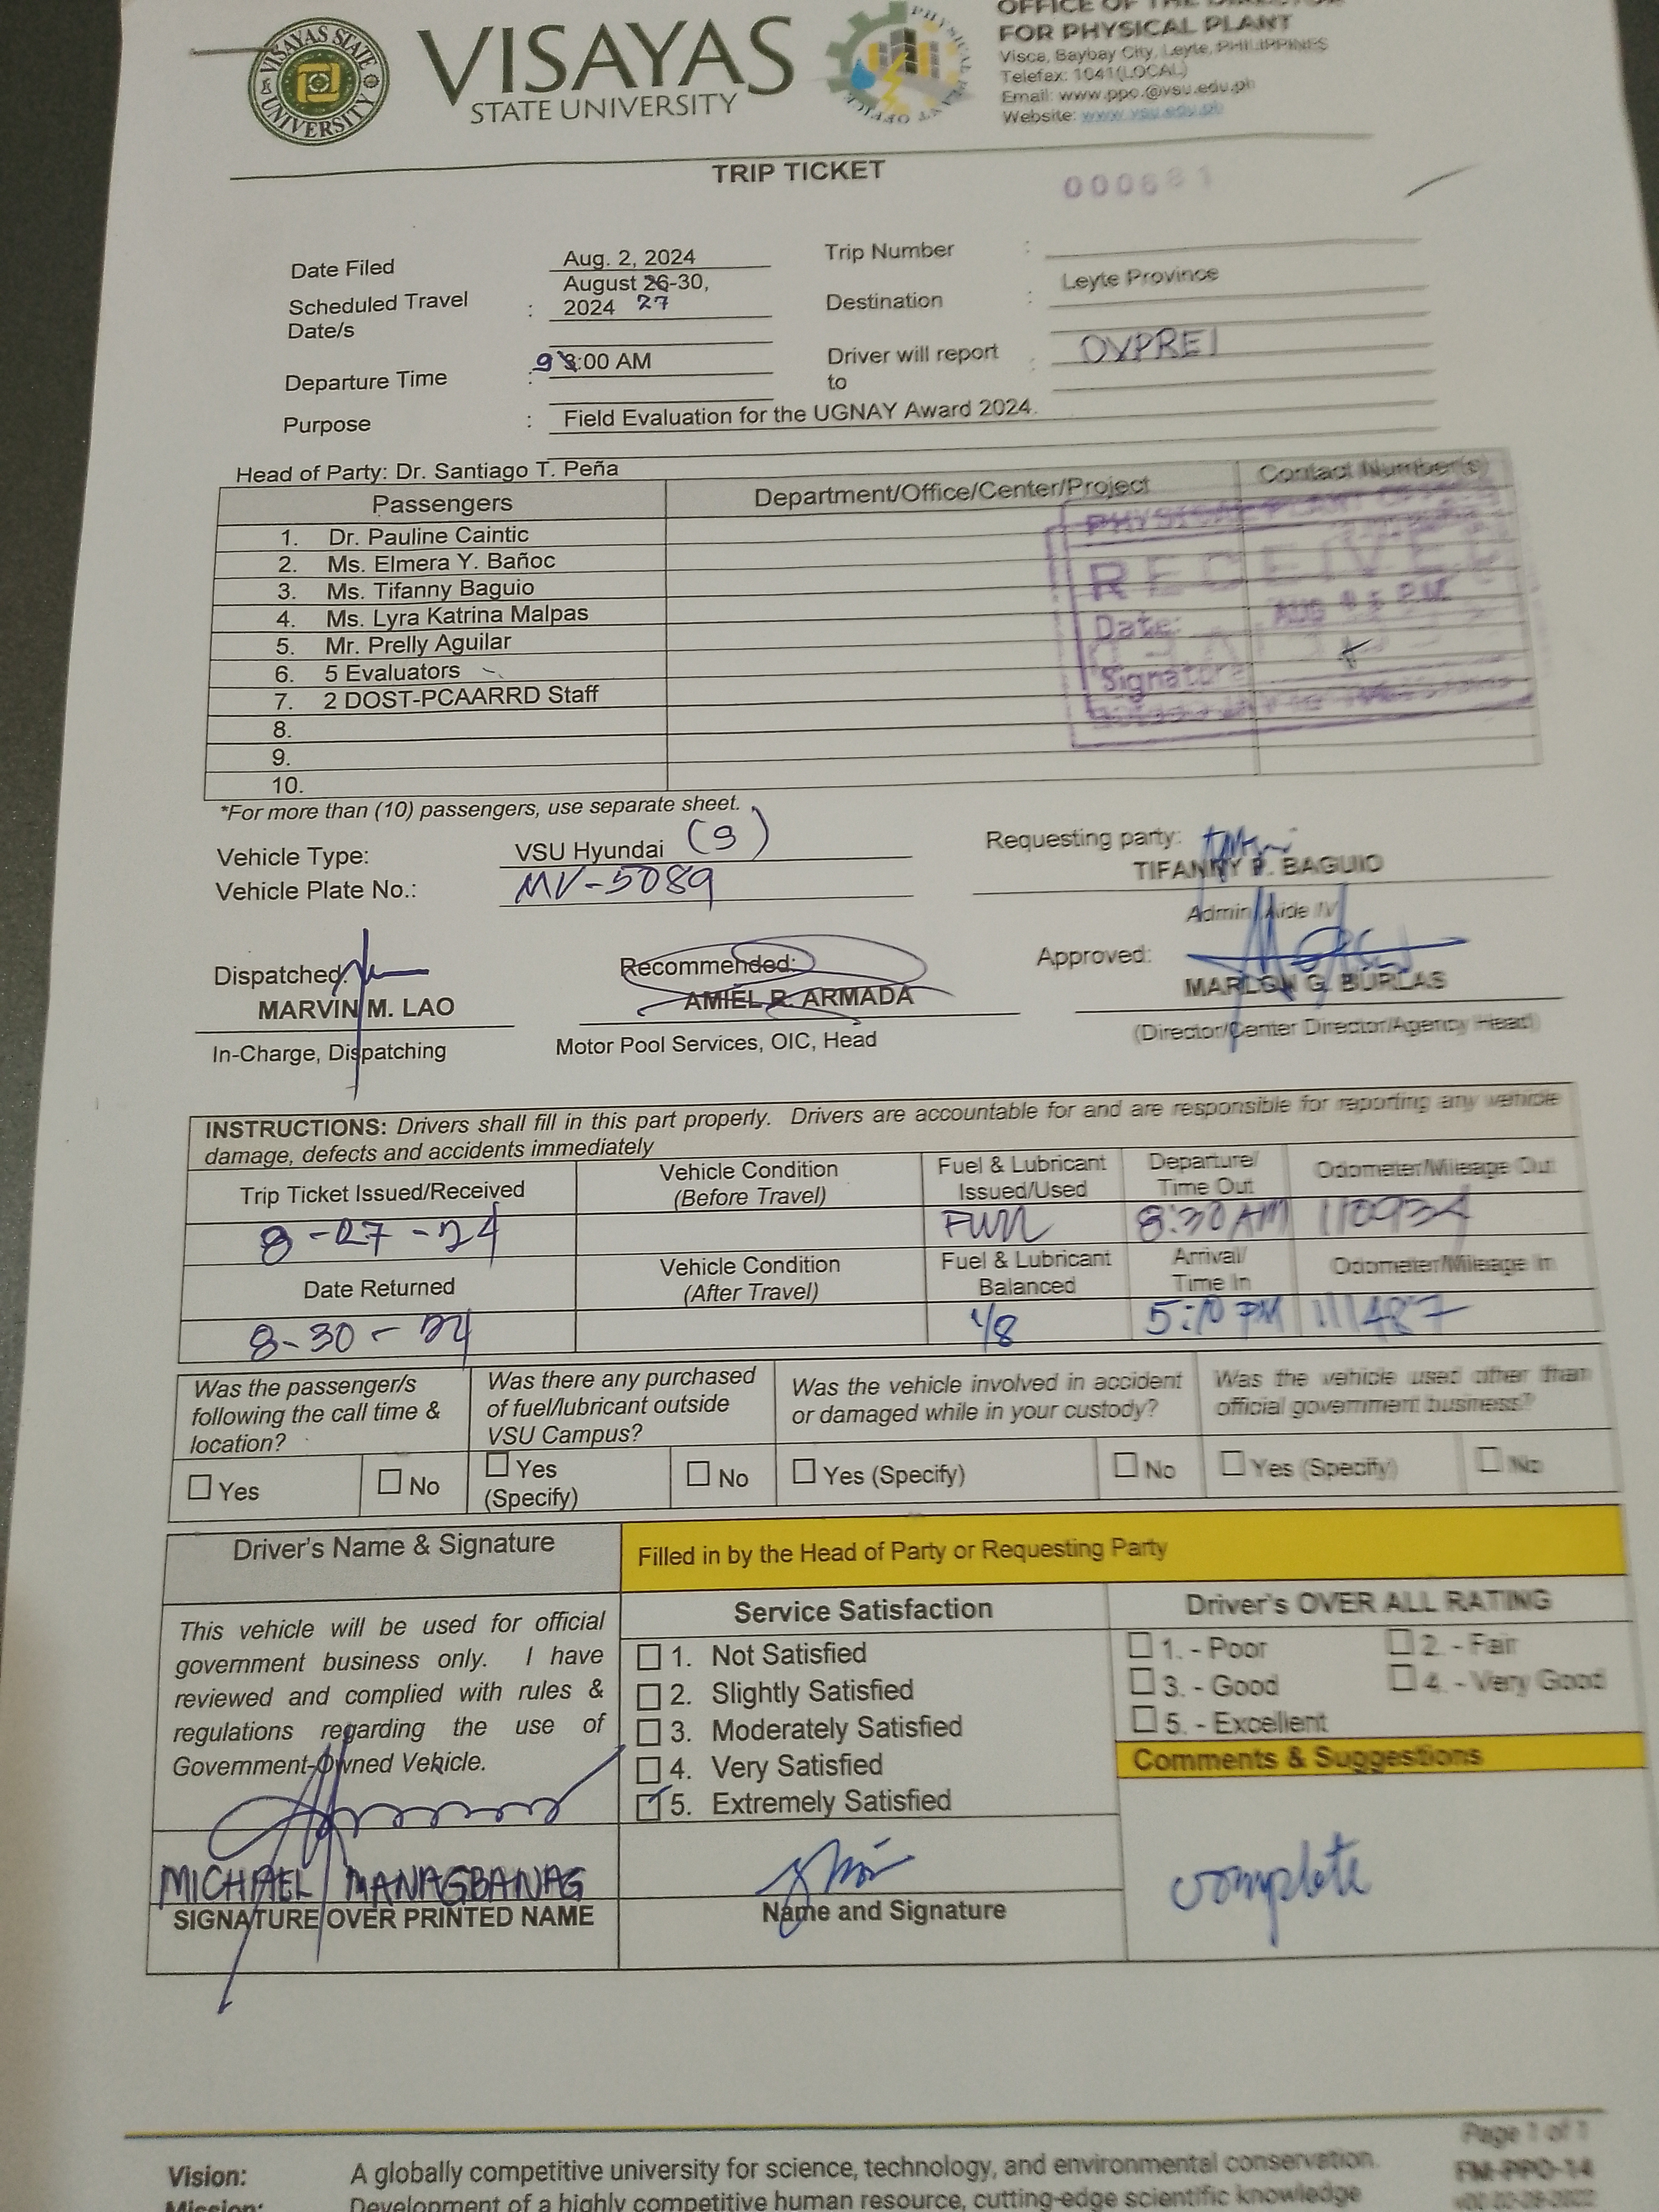 VISAYAS STATE UNIVERSITY
VISAYAS
STATE UNIVERSITY
PHYSICAL PLANT OFFICE
OFFICE OF THE DIRECTOR
FOR PHYSICAL PLANT
Visca, Baybay City, Leyte, PHILIPPINES
Telefax: 1041(LOCAL)
Email: www.ppo.@vsu.edu.ph
Website: www.vsu.edu.ph
TRIP TICKET
000681
Date Filed Aug. 2, 2024 Trip Number :
Scheduled Travel Date/s : August 26-30, 2024 27 Destination : Leyte Province
Departure Time : 9 8:00 AM Driver will report to : OVPREI
Purpose : Field Evaluation for the UGNAY Award 2024.
Head of Party: Dr. Santiago T. Peña
Passengers Department/Office/Center/Project Contact Number(s)
1. Dr. Pauline Caintic
2. Ms. Elmera Y. Bañoc
3. Ms. Tifanny Baguio
4. Ms. Lyra Katrina Malpas
5. Mr. Prelly Aguilar
6. 5 Evaluators
7. 2 DOST-PCAARRD Staff
8.
9.
10.
PHYSICAL PLANT OFFICE
RECEIVED
Date: AUG
Signature
*For more than (10) passengers, use separate sheet.
Vehicle Type: VSU Hyundai (9)
Vehicle Plate No.: MV-5089
Requesting party:
TIFANNY P. BAGUIO
Admin. Aide IV
Dispatched:
MARVIN M. LAO
In-Charge, Dispatching
Recommended:
AMIEL R. ARMADA
Motor Pool Services, OIC, Head
Approved:
MARLON G. BURLAS
(Director/Center Director/Agency Head)
INSTRUCTIONS: Drivers shall fill in this part properly. Drivers are accountable for and are responsible for reporting any vehicle
damage, defects and accidents immediately
Trip Ticket Issued/Received Vehicle Condition (Before Travel) Fuel & Lubricant Issued/Used Departure/ Time Out Odometer/Mileage Out
8-27-24 FULL 8:30 AM 110934
Date Returned Vehicle Condition (After Travel) Fuel & Lubricant Balanced Arrival/ Time In Odometer/Mileage In
8-30-24 1/8 5:10 PM 111487
Was the passenger/s following the call time & location?
Yes No
Was there any purchased of fuel/lubricant outside VSU Campus?
Yes (Specify) No
Was the vehicle involved in accident or damaged while in your custody?
Yes (Specify) No
Was the vehicle used other than official government business?
Yes (Specify) No
Driver's Name & Signature
Filled in by the Head of Party or Requesting Party
This vehicle will be used for official
government business only. I have
reviewed and complied with rules &
regulations regarding the use of
Government-Owned Vehicle.
MICHAEL MANAGBANAG
SIGNATURE OVER PRINTED NAME
Service Satisfaction
1. Not Satisfied
2. Slightly Satisfied
3. Moderately Satisfied
4. Very Satisfied
5. Extremely Satisfied
Name and Signature
Driver's OVER ALL RATING
1. - Poor 2. - Fair
3. - Good 4. - Very Good
5. - Excellent
Comments & Suggestions
complete
Page 1 of 1
FM-PPO-14
Vision: A globally competitive university for science, technology, and environmental conservation.
Mission: Development of a highly competitive human resource, cutting-edge scientific knowledge